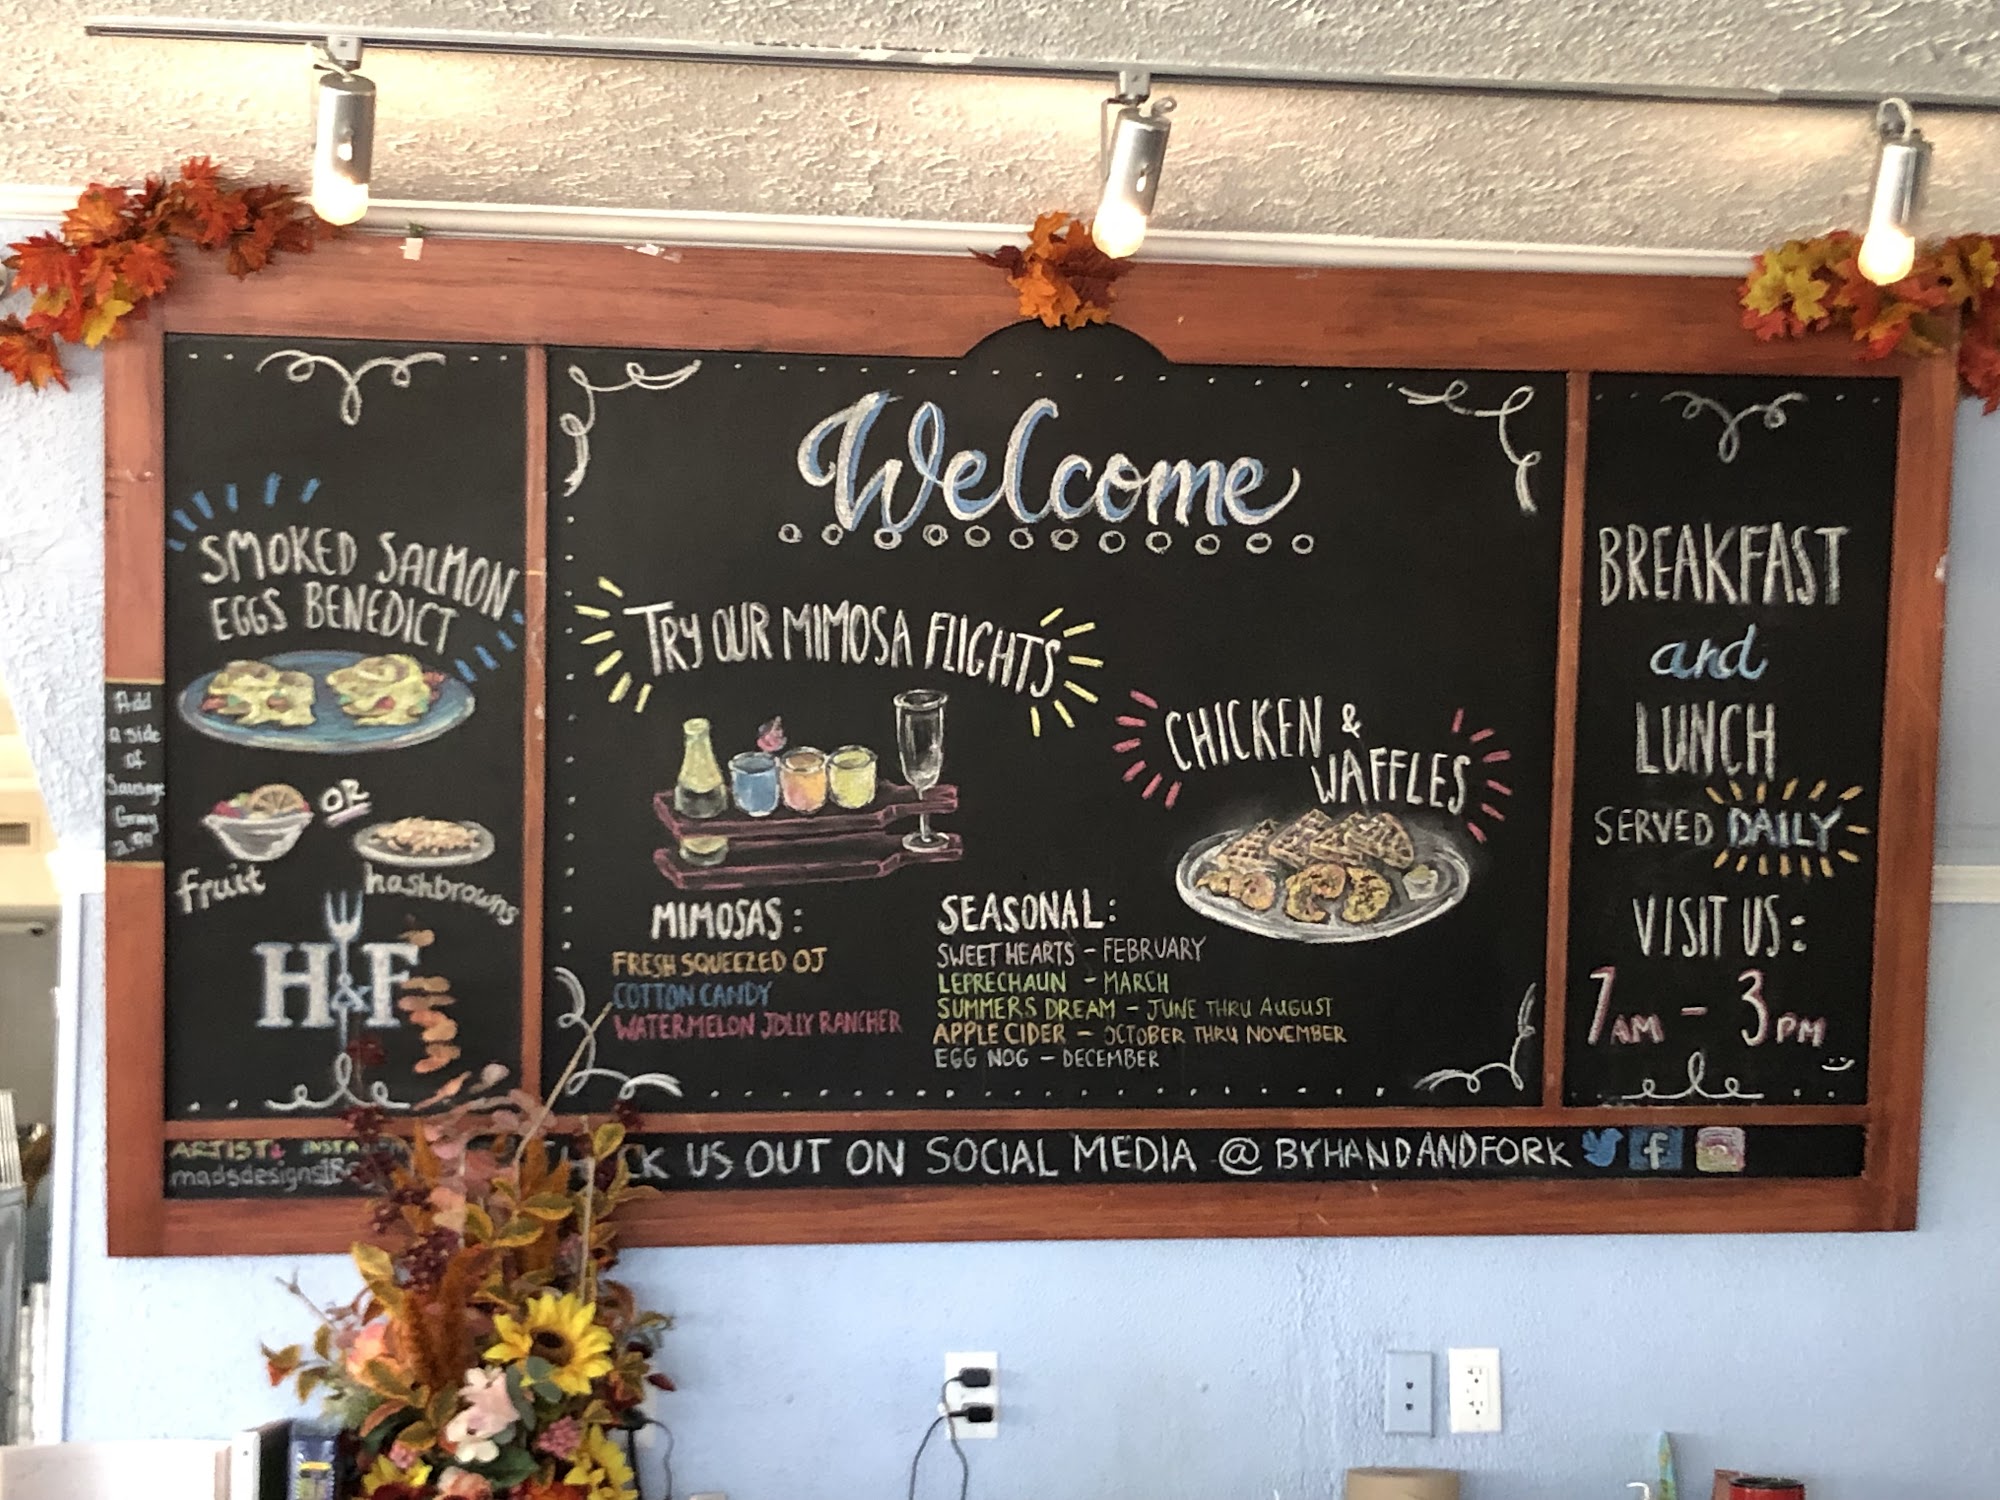 Add
a side
of
Sausage
Gravy
2.99
SMOKED SALMON
EGGS BENEDICT
OR
fruit
hashbrowns
H&F
Welcome
TRY OUR MIMOSA FLIGHTS
CHICKEN &
WAFFLES
MIMOSAS:
FRESH SQUEEZED OJ
COTTON CANDY
WATERMELON JOLLY RANCHER
SEASONAL:
SWEET HEARTS - FEBRUARY
LEPRECHAUN - MARCH
SUMMERS DREAM - JUNE THRU AUGUST
APPLE CIDER - OCTOBER THRU NOVEMBER
EGG NOG - DECEMBER
BREAKFAST
and
LUNCH
SERVED DAILY
VISIT US:
7AM - 3PM
ARTIST:
US OUT ON SOCIAL MEDIA @BYHANDANDFORK